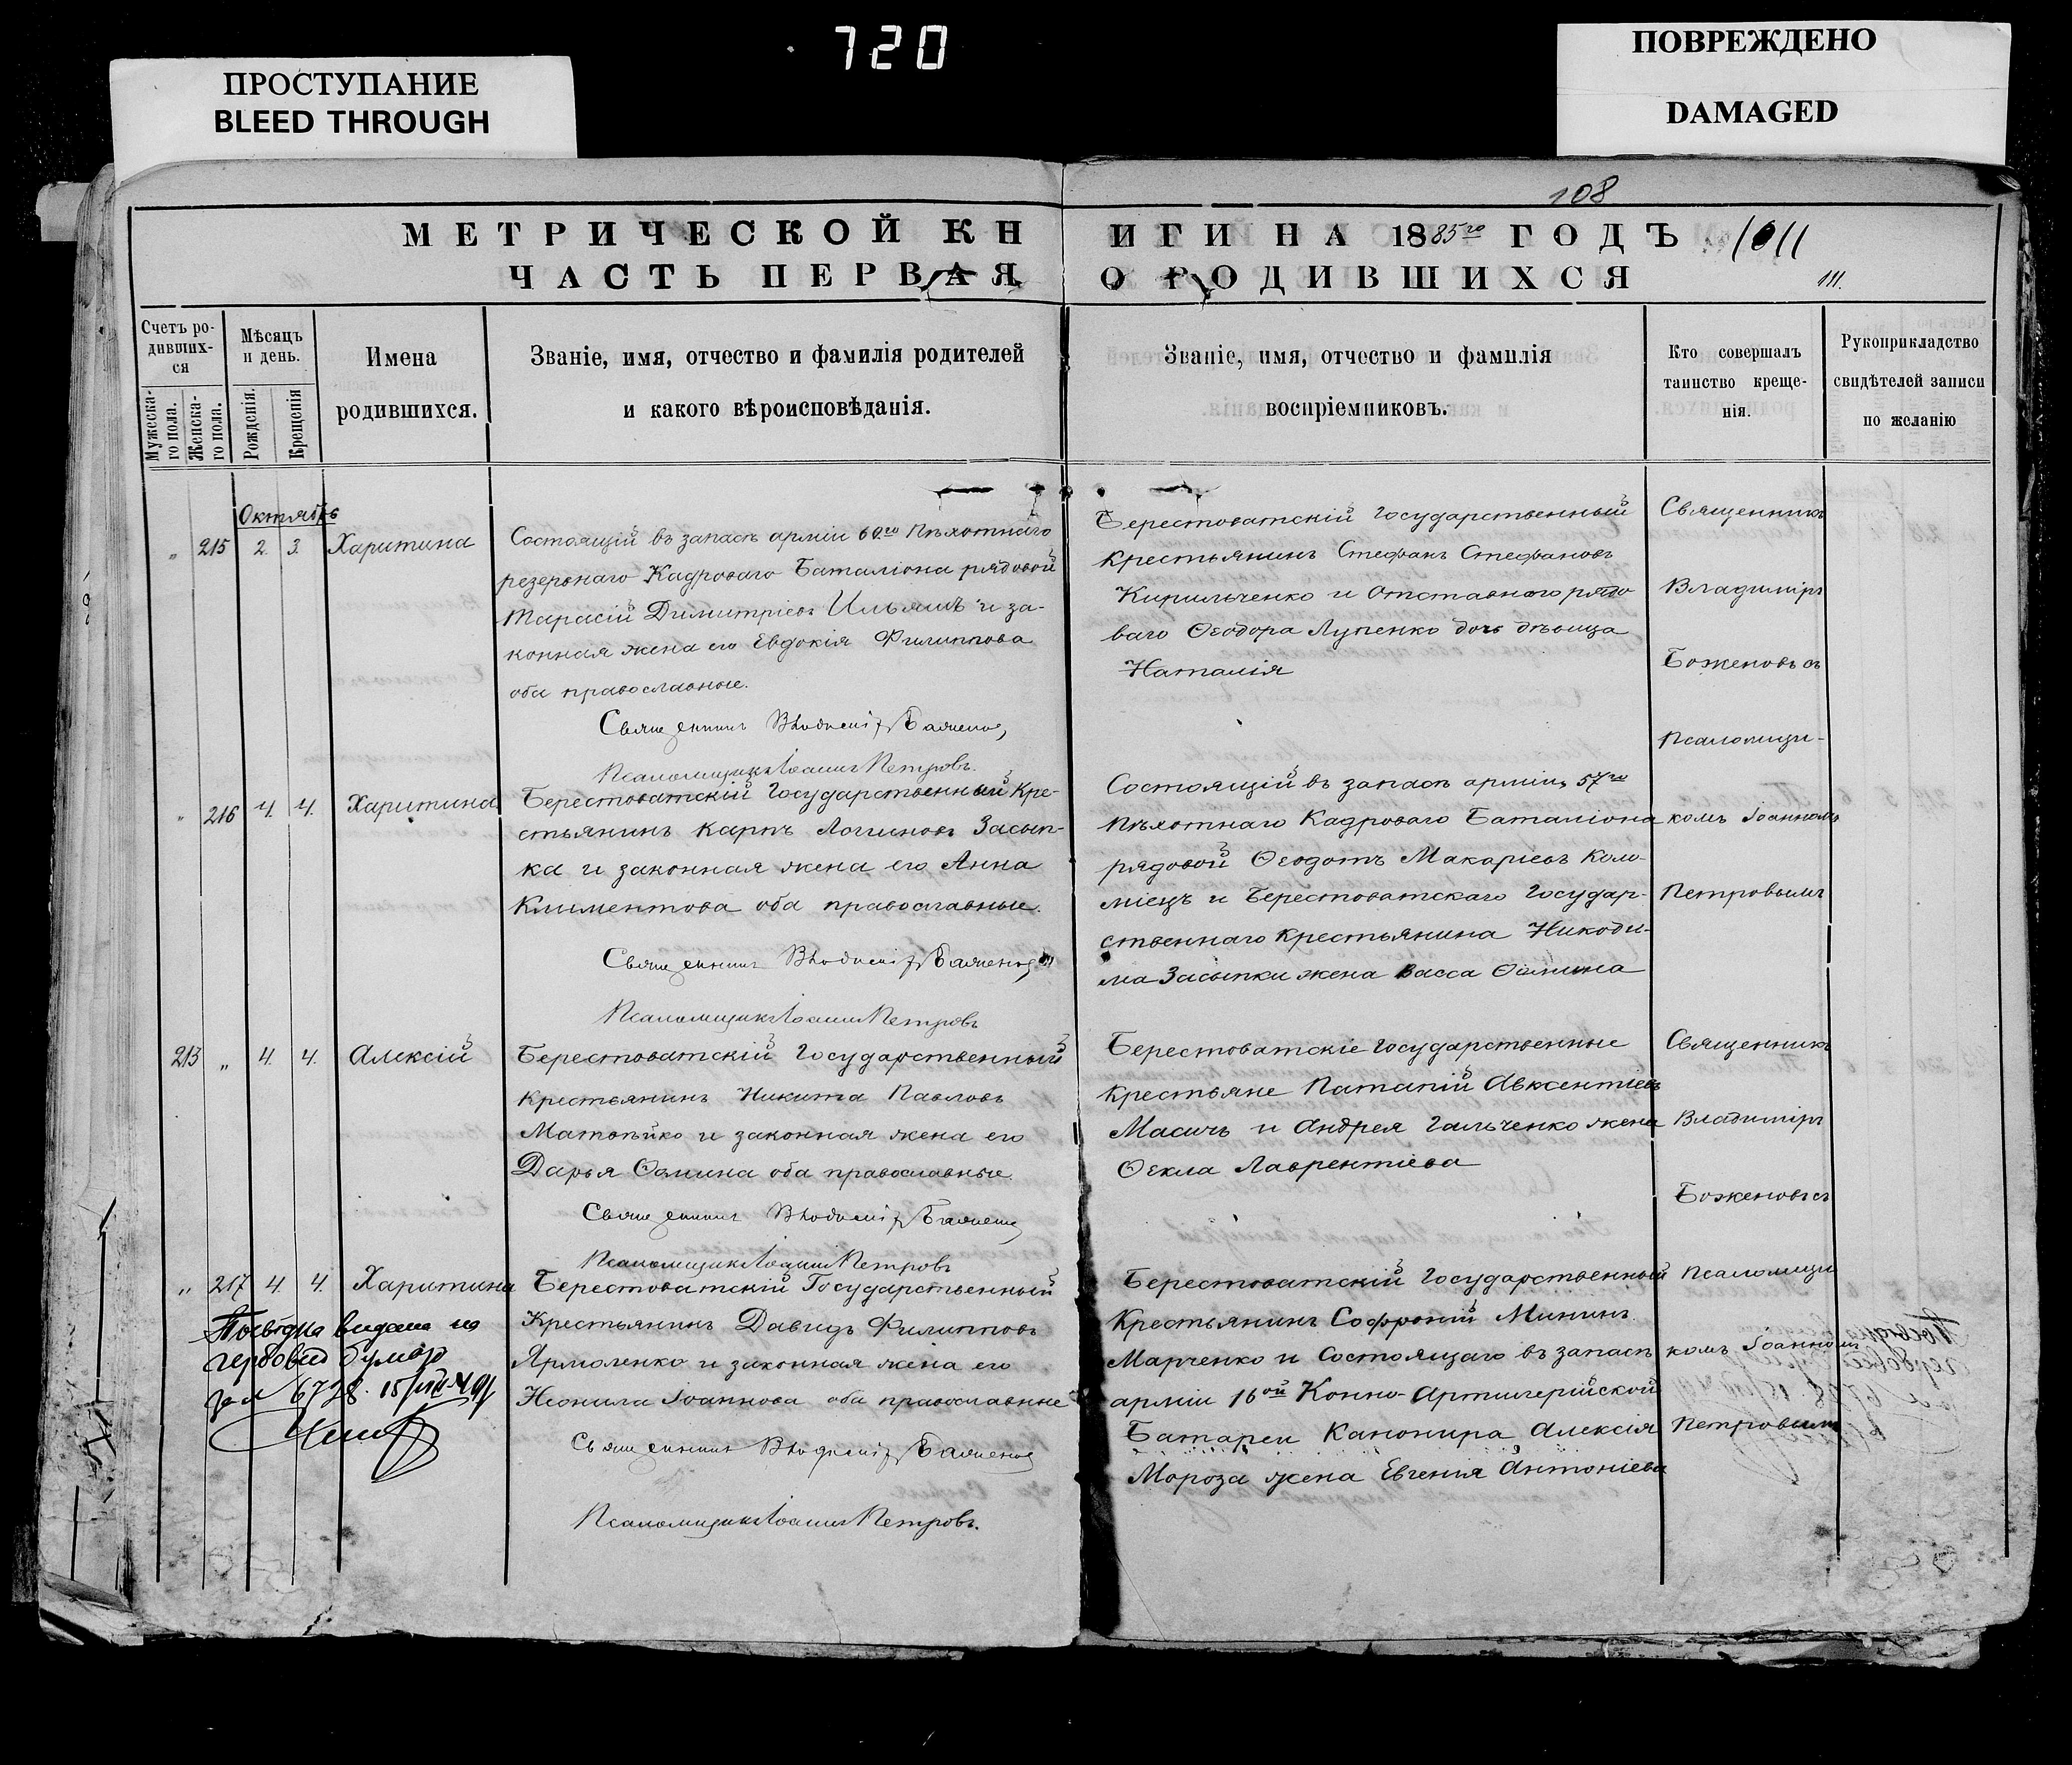 720
ПРОСТУПАНИЕ
BLEED THROUGH
ПОВРЕЖДЕНО
DAMAGED
108
МЕТРИЧЕСКОЙ КНИГИ НА 1885го ГОДЪ
1011
ЧАСТЬ ПЕРВАЯ О РОДИВШИХСЯ
111.
Счетъ ро-
дивших-
ся
Мужеска-
го пола.
Женска-
го пола.
Мѣсяцъ
и день.
Рожденія.
Крещенія
Имена
родившихся.
Званіе, имя, отчество и фамилія родителей
и какого вѣроисповѣданія.
Званіе, имя, отчество и фамилія
воспріемниковъ.
Кто совершалъ
таинство креще-
нія.
Рукоприкладство
свидѣтелей записи
по желанію
Октябрь
" 215 2. 3. Харитина
Состоящій въ запасѣ арміи 60го Пѣхотнаго
резервнаго Кадроваго Баталіона рядовой
Тарасій Димитріевъ Ильяшъ и за-
конная жена его Евдокія Филиппова
оба православные.
Священникъ
Псаломщикъ Іоаннъ Петровъ.
Берестоватскій Государственный
крестьянинъ Стефанъ Стефановъ
Кирильченко и Отставного рядо
ваго Ѳеодора Лупенко дочь дѣвица
Наталія
Священникъ
Владиміръ
Боженовъ съ
Псаломщи-
комъ Іоанномъ
Петровымъ
" 216 4. 4. Харитина
Берестоватскій Государственный кре-
стьянинъ Карпъ Логиновъ Засып-
ка и законная жена его Анна
Климентова оба православные.
Священникъ
Псаломщикъ Іоаннъ Петровъ
Состоящій въ запасѣ арміи 57го
Пѣхотнаго Кадроваго Баталіона
рядовой Ѳеодотъ Макаріевъ Коло-
міецъ и Берестоватскаго Государ-
ственнаго крестьянина Никоди-
ма Засыпки жена Васса Ѳомина
213 " 4. 4. Алексій
Берестоватскій Государственный
крестьянинъ Никита Павловъ
Матвѣйко и законная жена его
Дарья Ѳомина оба православные.
Священникъ
Псаломщикъ Іоаннъ Петровъ
Берестоватскіе Государственные
крестьяне Патапій Авксентіевъ
Масичъ и Андрея Гальченко жена
Ѳекла Лаврентіева
Священникъ
Владиміръ
Боженовъ съ
Псаломщи
комъ Іоанномъ
Петровымъ
" 217 4. 4. Харитина
Берестоватскій Государственный
Крестьянинъ Давидъ Филипповъ
Ярмоленко и законная жена его
Неонила Іоаннова оба православные
Священникъ
Псаломщикъ Іоаннъ Петровъ.
Берестоватскій Государственный
Крестьянинъ Софроній Мининъ
Марченко и Состоящаго въ запасѣ
арміи 16ой Конно-Артилерійской
Батареи Канонира Алексія
Мороза жена Евгенія Антоніева
видана на
6728.